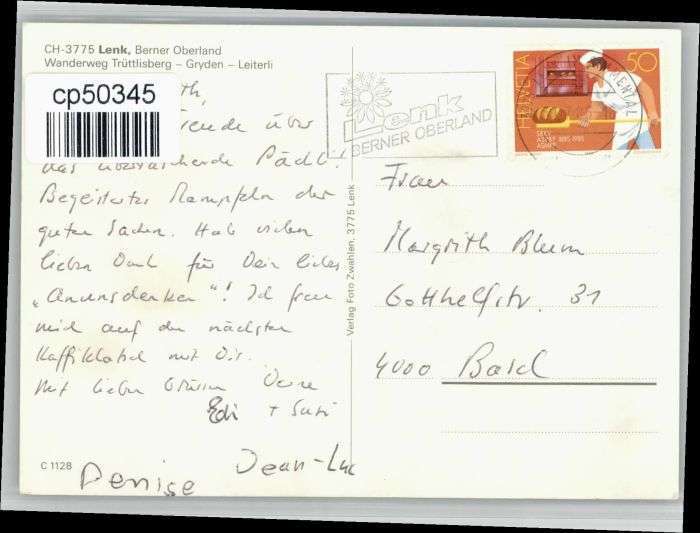 CH-3775 Lenk, Berner Oberland
Wanderweg Trüttlisberg – Gryden – Leiterli
cp50345
th,
reude über
das überraschende Päckli!
Begeistertes Mampfeln der
guten Sachen. Hab vielen
lieben Dank für Dein liebes
"Anunsdenken"! Ich freue
mich auf den nächsten
Kaffiklatsch mit Dir.
Mit lieben Grüssen Deine
Edi + Susi
Jean-Luc
Denise
C 1128
Verlag Foto Zwahlen, 3775 Lenk
Lenk
BERNER OBERLAND
HELVETIA
50
1885-1985
Frau
Margrith Blum
Gotthelfstr. 31
4000 Basel